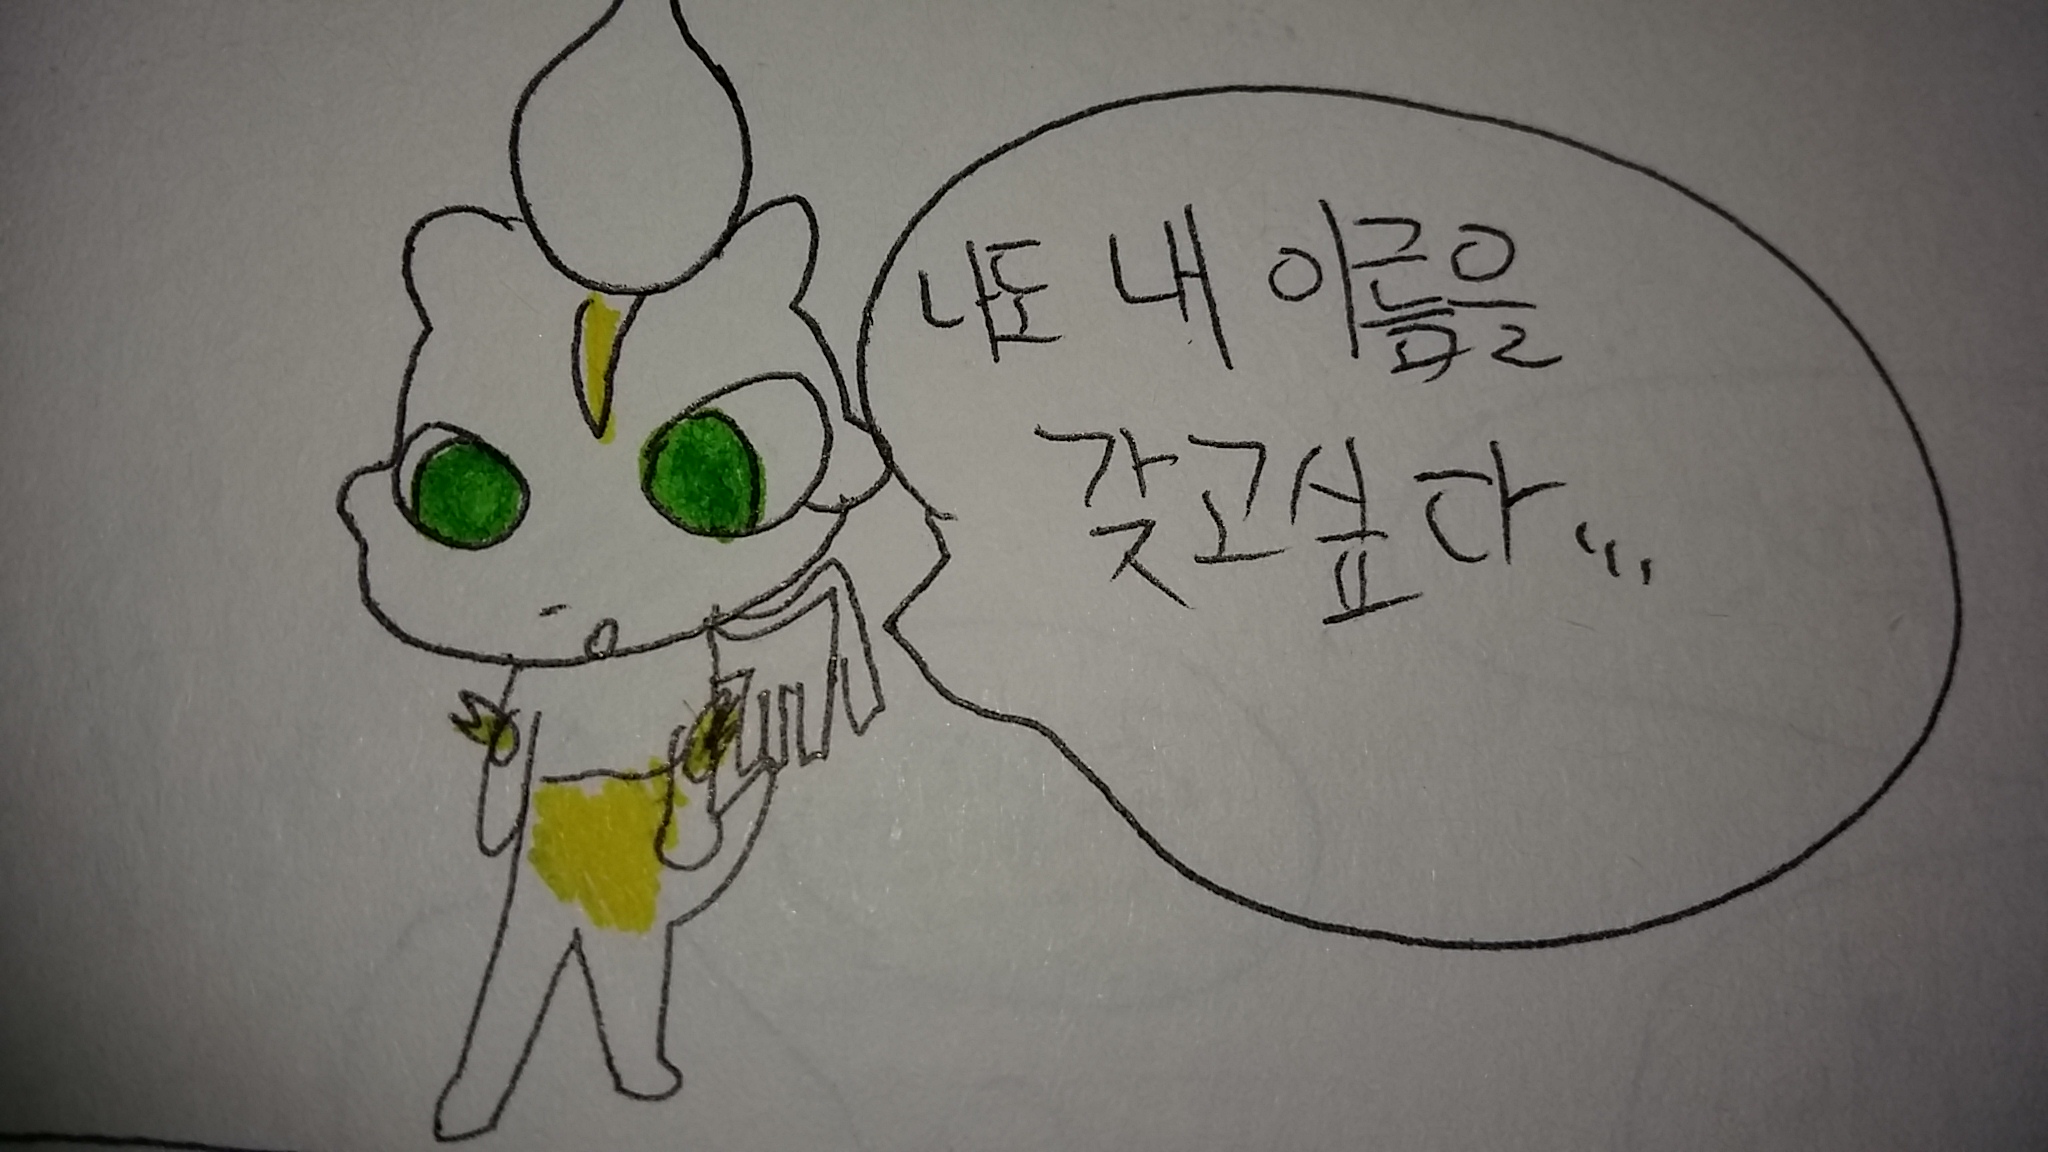 나도 내 이름을
갖고싶다...